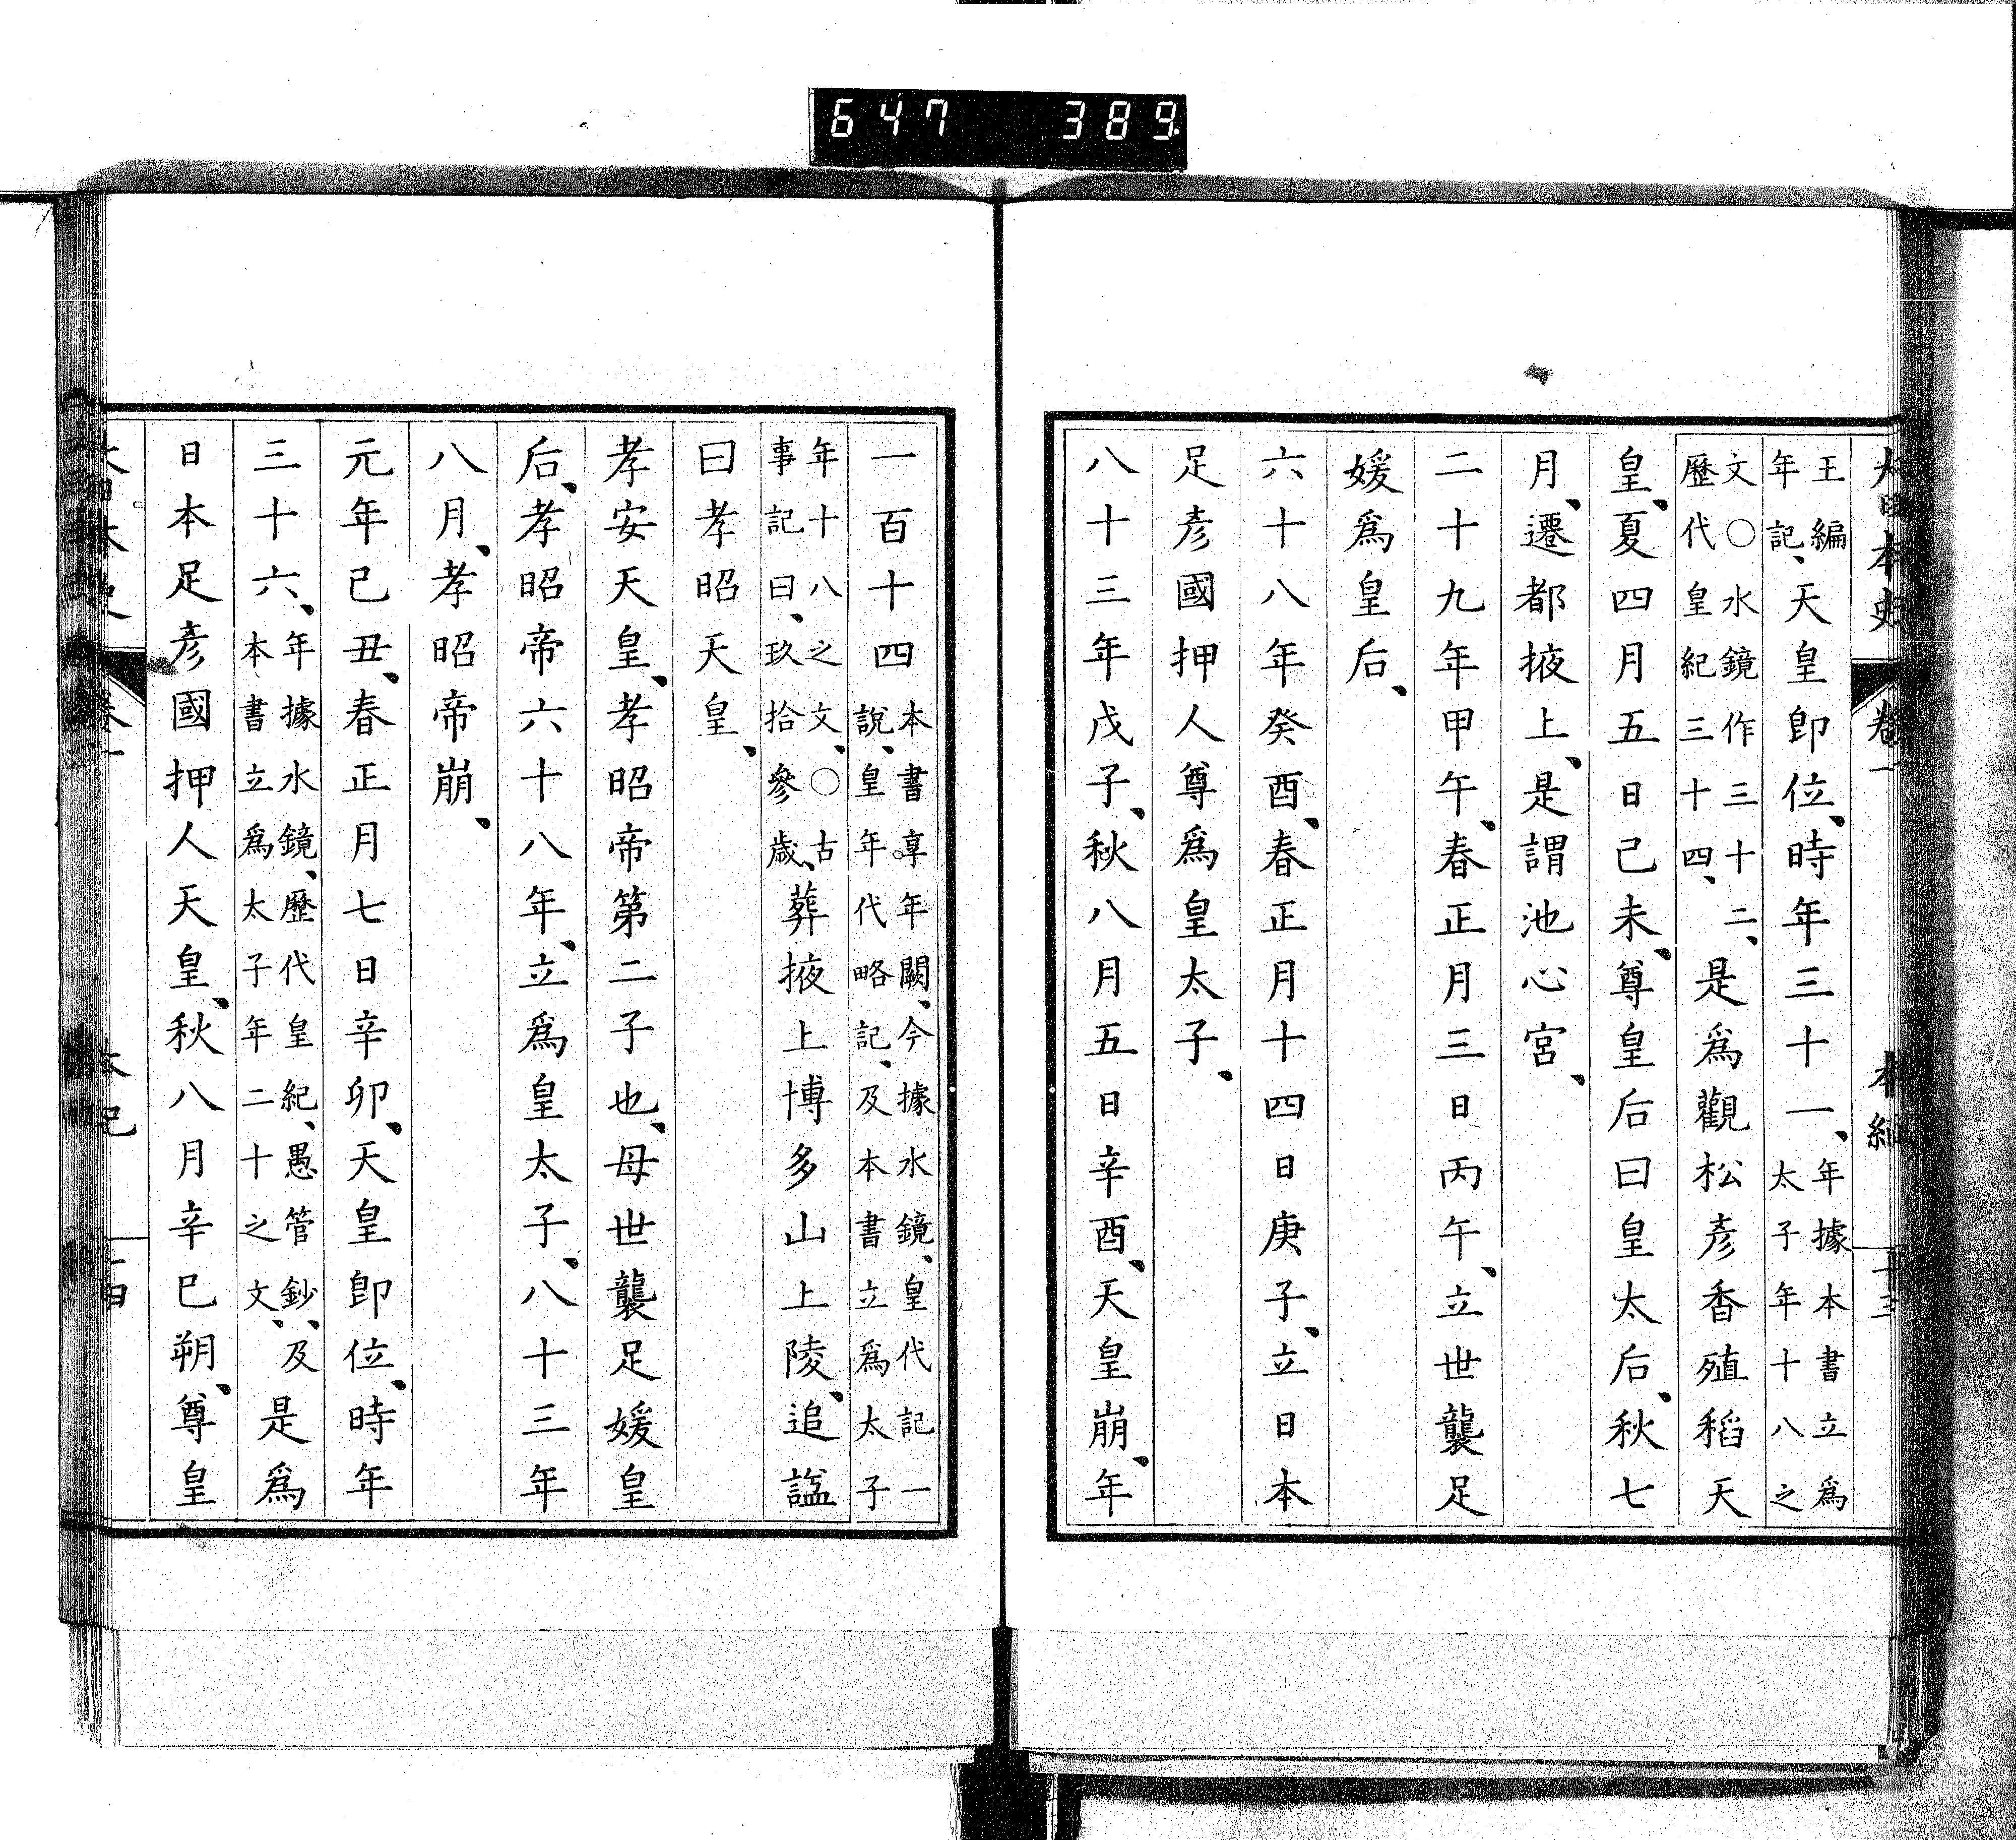 647 389
大日本史 卷一 本紀 十三
王編年記、天皇卽位、時年三十一、年據本書立爲太子年十八之
文○水鏡作三十二、歷代皇紀三十四、是爲觀松彥香殖稻天
皇、夏四月五日己未、尊皇后曰皇太后、秋七
月、遷都掖上、是謂池心宮、
二十九年甲午、春正月三日丙午、立世襲足
媛爲皇后、
六十八年癸酉、春正月十四日庚子、立日本
足彥國押人尊爲皇太子、
八十三年戊子、秋八月五日辛酉、天皇崩、年
一百十四本書享年闕、今據水鏡、皇代記一說、皇年代略記、及本書立爲太子
年十八之文、○古事記曰、玖拾參歲、葬掖上博多山上陵、追諡
曰孝昭天皇、
孝安天皇、孝昭帝第二子也、母世襲足媛皇
后、孝昭帝六十八年、立爲皇太子、八十三年
八月、孝昭帝崩、
元年己丑、春正月七日辛卯、天皇卽位、時年
三十六、年據水鏡、歷代皇紀、愚管鈔、及本書立爲太子年二十之文、是爲
日本足彥國押人天皇、秋八月辛巳朔、尊皇
卷一